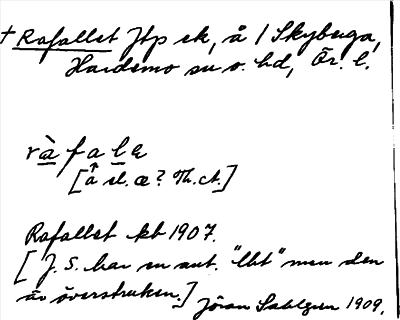 † Rafallet Jtp sk, å / Skyberga,
Hardemo sn o. hd, Ör. l.
ràfala
[å el. æ? Th.ct.]
Rafallet kb 1907.
[J. S. har en ant. "llt" men den
är överstruken.] Jöran Sahlgren 1909.